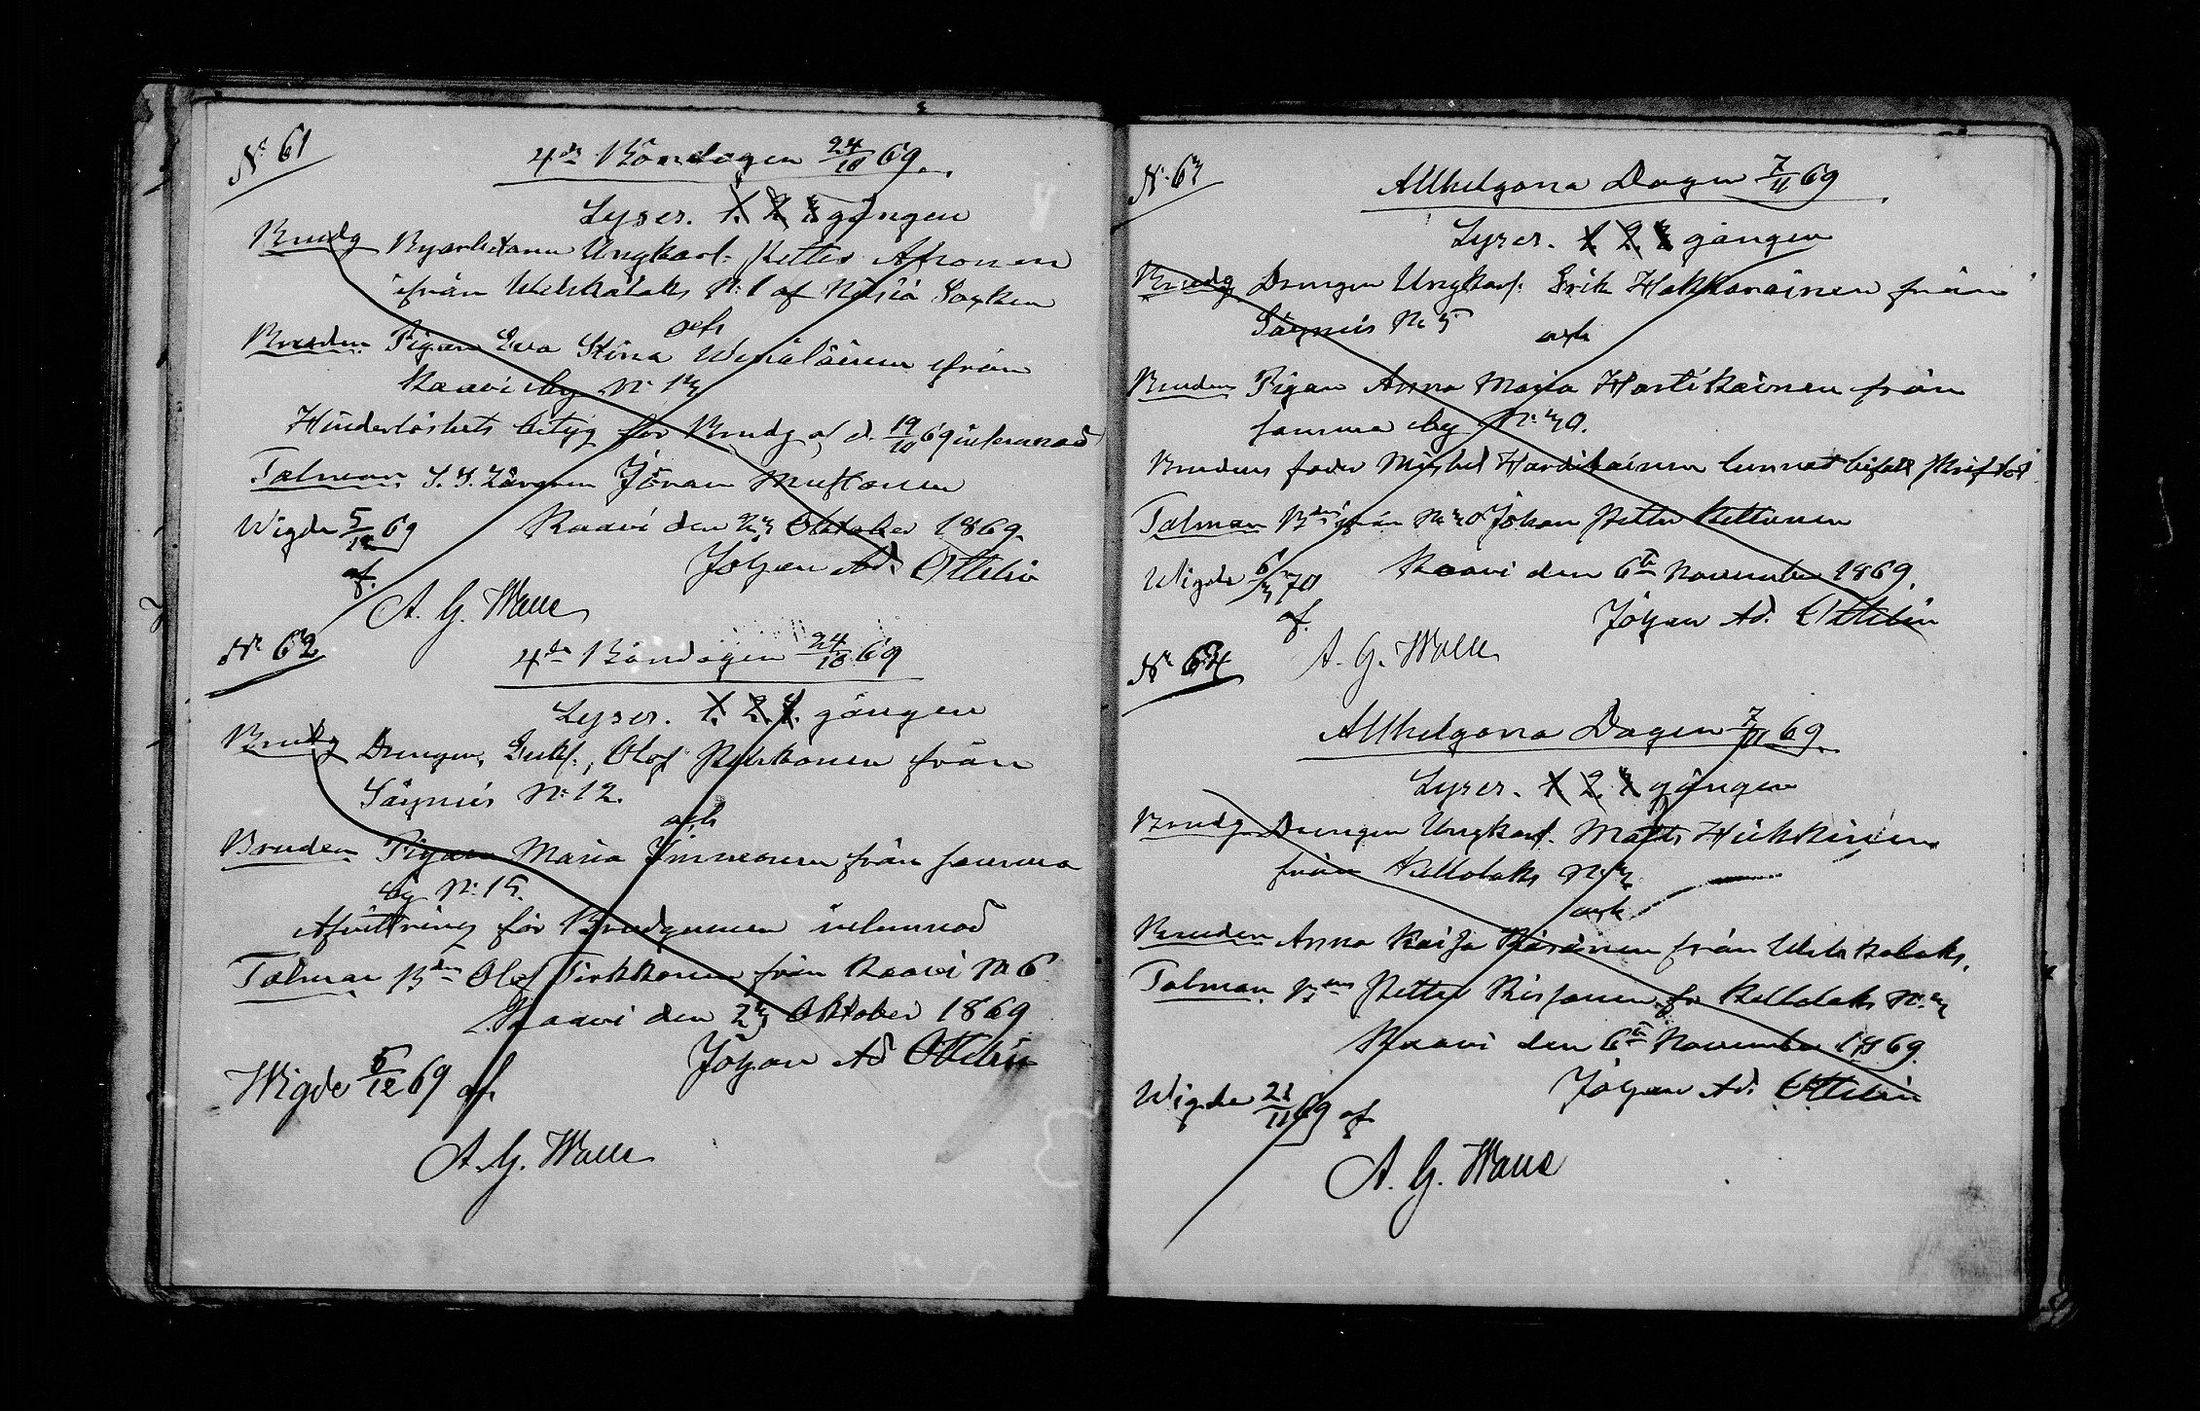 N:o 61
4de Böndagen 24/10 69.
Lyses. 1. 2. 3. gången
Brudg Nyarbetaren Ungkarl. Petter Ahonen
ifrån Welskälaks N:o 1 af Nilsiä Socken
och
Bruden Pigan Eva Stina Wenäläinen ifrån
Kaavi by N:o 13
Hinderlöshets betyg för Brudg. af d. 19/10 69 inlemnad
Talman. Jöran Mustonen
Wigde 5/12 69 Kaavi den 23 Oktober 1869.
af. Johan Ad. Ottelin
A. G. Walle
N:o 62
4de Böndagen 24/10 69
Lyses. 1. 2. 3. gången
Brudg Drengen, Enkl:, Olof Pelkonen från
Säyneis N:o 12.
och
Bruden Pigan Maria Immonen från samma
by N:o 15.
Afvittring för Brudgummen inlemnad
Talman Bdens Olof Tirkkonen från Kaavi N:o 6
Kaavi den 23 Oktober 1869
Johan Ad Ottelin
Wigde 5/12 69 af
A. G. Walle
N:o 63
Allhelgona Dagen 7/11 69
Lyses. 1 2. 3 gången
Brudg Drengen Ungkarl. Erik Hakkarainen från
Säyneis N:o 5
och
Bruden Pigan Anna Maria Hartikainen från
samma by N:o 30.
Brudens fader Mickel Hardikainen lemnat bifall
Talman Bdens från N:o 30 Johan Petter Kettunen
Wigde 6/3 70 Kaavi den 6te November 1869.
af. Johan Ad. Ottelin
A. G. Walle
N:o 64
Allhelgona Dagen 7/11 69.
Lyses. 1 2. 3 gången
Brudg Drengen Ungkarl. Matts Hiekkinen
från Kellolaks N:o 3
och
Bruden Anna Kaisa Räsänen från Welskalaks.
Talman Bdens Petter Rissanen fr Kellolaks N:o 3
Kaavi den 6te November 1869.
Johan Ad. Ottelin
Wigde 21/11 69 af
A. G. Walle